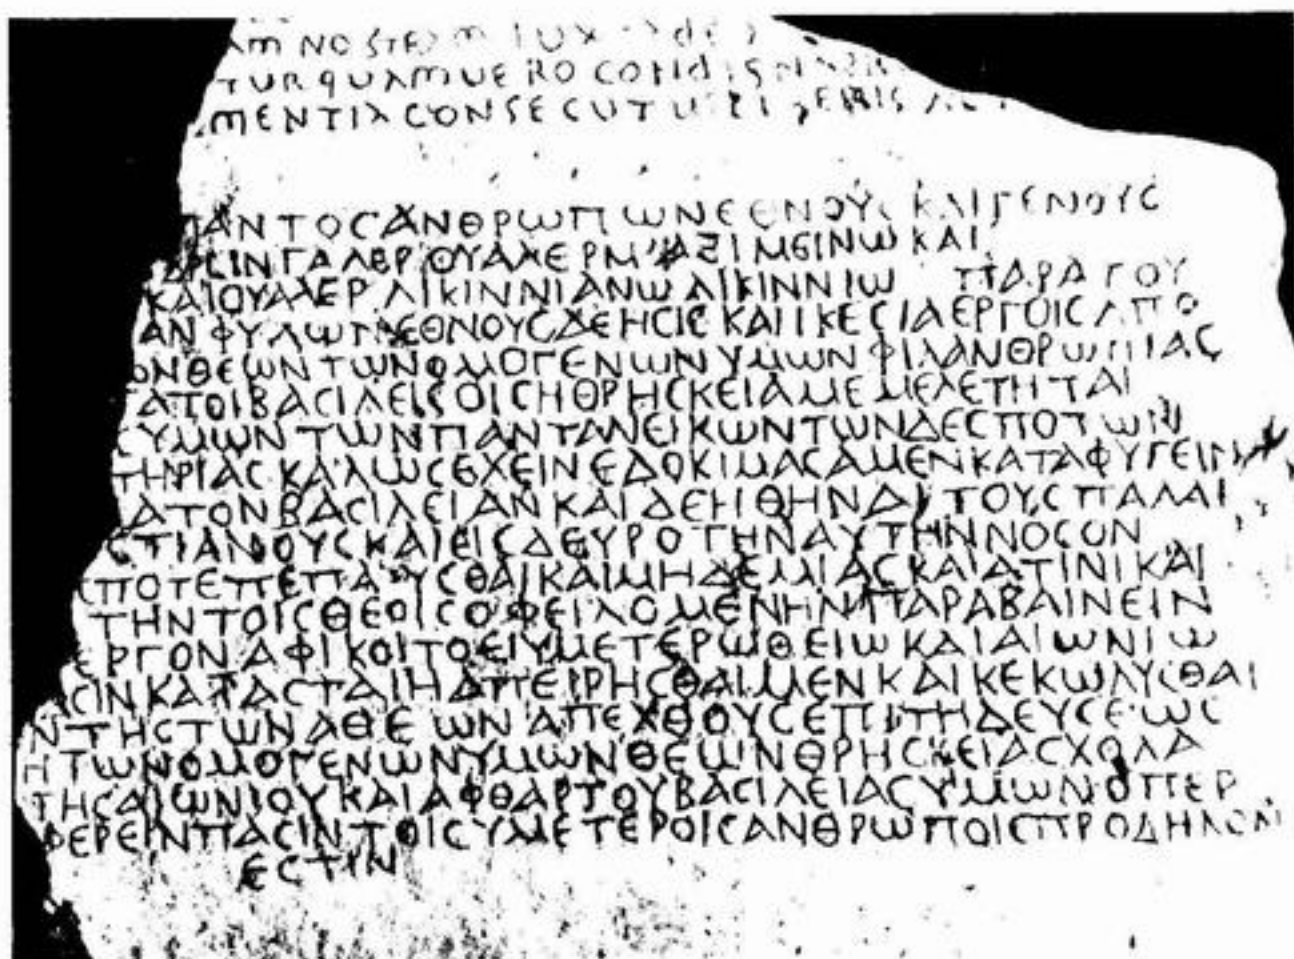 ΑΜ ΝΟSΤ
TURQUAMUERO
MENTIACONSECUTU
ΠΑΝΤΟСΑΝΘΡΩΠΩΝΕΘΝΟΥСΚΑΙΓΕΝΟΥС
ΣΙΝΓΑΛΕΡΟΥΑΛΕΡΜΑΞΙΜΕΙΝΩΚΑΙ
ΚΑΙΟΥΑΛΕΡΛΙΚΙΝΝΙΑΝΩΛΙΚΙΝΝΙΩ ΠΑΡΑ
ΑΜΦΥΛΩΝΕΘΝΟΥСΔΕΗСΙСΚΑΙΙΚΕСΙΑΕΡΓΟΙСΑΠΟ
ΩΝΘΕΩΝΤΩΝΟΜΟΓΕΝΩΝΥΜΩΝΦΙΛΑΝΘΡΩΠΙΑС
ΤΑΤΟΙΒΑСΙΛΕΙСΟΙСΗΘΡΗСΚΕΙΑΜΕΜΕΛΕΤΗΤΑΙ
СΥΜΩΝΤΩΝΠΑΝΤΑΝΕΙΚΩΝΤΩΝΔΕСΠΟΤΩΝ
ΤΗΡΙΑСΚΑΛΩСΕΧΕΙΝΕΔΟΚΙΜΑСΑΜΕΝΚΑΤΑΦΥΓΕΙΝ
ΑΤΟΝΒΑСΙΛΕΙΑΝΚΑΙΔΕΗΘΗΝΑΙΤΟΥСΠΑΛΑΙ
СΤΙΑΝΟΥСΚΑΙΕΙСΔΕΥΡΟΤΗΝΑΥΤΗΝΝΟСΟΝ
ΠΟΤΕΠΕΠΑΥСΘΑΙΚΑΙΜΗΔΕΜΙΑСΚΑΙΑΤΙΝΙΚΑΙ
ΤΗΝΤΟΙСΘΕΟΙСΟΦΕΙΛΟΜΕΝΗΝΠΑΡΑΒΑΙΝΕΙΝ
ΕΡΓΟΝΑΦΙΚΟΙΤΟΕΙΥΜΕΤΕΡΩΘΕΙΩΚΑΙΑΙΩΝΙΩ
СΙΝΚΑΤΑСΤΑΙΗΑΠΕΙΡΗСΘΑΙΜΕΝΚΑΙΚΕΚΩΛΥСΘΑΙ
ΝΤΗСΤΩΝΑΘΕΩΝΑΠΕΧΘΟΥСΕΠΙΤΗΔΕΥСΕΩС
ΗΤΩΝΟΜΟΓΕΝΩΝΥΜΩΝΘΕΩΝΘΡΗСΚΕΙΑСΧΟΛΑ
ΤΗСΑΙΩΝΙΟΥΚΑΙΑΦΘΑΡΤΟΥΒΑСΙΛΕΙΑСΥΜΩΝΟΠΕΡ
ΦΕΡΕΙΝΠΑСΙΝΤΟΙСΥΜΕΤΕΡΟΙСΑΝΘΡΩΠΟΙСΠΡΟΔΗΛΟΝ
ΕСΤΙΝ